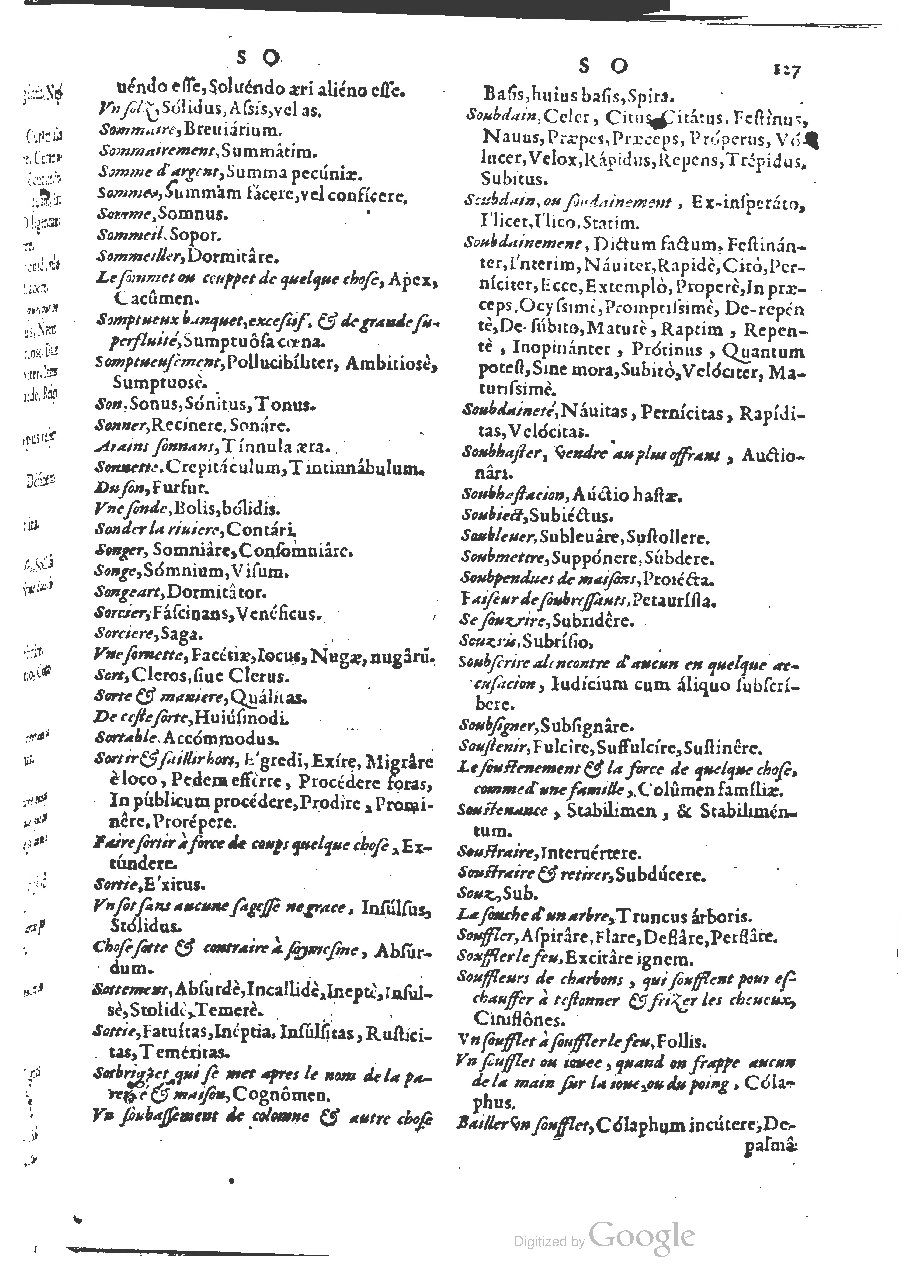 S O
uéndo eſſe, Soluéndo æri aliéno eſſe.
Vn ſolz, Sólidus, Aſsis, vel as.
Sommaire, Breuiárium.
Sommairement, Summátim.
Somme d'argent, Summa pecúniæ.
Sommer, Summam fácere, vel confícere.
Somme, Somnus.
Sommeil, Sopor.
Sommeiller, Dormitâre.
Le ſommet ou ceuppet de quelque choſe, Apex,
Cacûmen.
Somptueux banquet, exceſsif, & de grande ſu-
perfluité, Sumptuôſa cœna.
Somptueuſement, Pollucibíliter, Ambitiosè,
Sumptuosè.
Son, Sonus, Sónitus, Tonus.
Sonner, Recinere, Sonáre.
Arains ſonnans, Tínnula æra.
Sonnette, Crepitáculum, Tintianábulum.
Du ſon, Furfur.
Vne ſonde, Bolis, bólidis.
Sonder la riuiere, Contári.
Songer, Somniâre, Conſomniâre.
Songe, Sómnium, Viſum.
Songeart, Dormitâtor.
Sorcier, Fáſcinans, Venéficus.
Sorciere, Saga.
Vne ſornette, Facétiæ, Iocus, Nugæ, nugârũ.
Sort, Cleros, ſiue Clerus.
Sorte & maniere, Quálitas.
De ceſte ſorte, Huiúſmodi.
Sortable, Accómmodus.
Sortir & ſaillir hors, E'gredi, Exíre, Migrâre
è loco, Pedem efferre, Procédere foras,
In públicum procédere, Prodire, Promi-
nêre, Prorépere.
Faire ſortir à force de coups quelque choſe, Ex-
túndere.
Sortie, E'xitus.
Vn ſot ſans aucune ſageſſe ne grace, Inſúlſus,
Stólidus.
Choſe ſotte & contraire à ſoymeſme, Abſúr-
dum.
Sottement, Abſurdè, Incallidè, Ineptè, Inſul-
sè, Stolidè, Temerè.
Sottie, Fatuítas, Inéptia, Inſúlſitas, Ruſtici-
tas, Teméritas.
Sotbriquet, qui ſe met apres le nom de la pa-
renté & maiſon, Cognômen.
Vn ſoubaſſement de colomne & autre choſe
S O 127
Baſis, huius baſis, Spira.
Soubdain, Celer, Citus, Citátus, Feſtînus,
Nauus, Præpes, Præceps, Próperus, Vó-
lucer, Velox, Rápidus, Repens, Trépidus,
Subitus.
Soubdain, ou ſoudainement, Ex-inſperáto,
I'licet, I'lico, Statim.
Soubdainement, Dictum factum, Feſtinán-
ter, I'nterim, Náuiter, Rapidè, Citò, Per-
níciter, Ecce, Extemplò, Properè, In præ-
ceps, Ocyſsimè, Promptiſsimè, De-repén
tè, De-ſúbito, Maturè, Raptim, Repen-
tè, Inopinánter, Prótinus, Quantum
poteſt, Sine mora, Subitò, Velóciter, Ma-
turíſsimè.
Soubdaineté, Náuitas, Pernícitas, Rapídi-
tas, Velócitas.
Soubhaſter, vendre au plus offrant, Auctio-
nári.
Soubhaſtacion, Aúctio haſtæ.
Soubiect, Subiéctus.
Soubleuer, Subleuâre, Suſtollere.
Soubmettre, Suppónere, Súbdere.
Soubpendues de maiſons, Proiécta.
Faiſeur de ſoubreſſauts, Petauríſta.
Se ſouzrire, Subridêre.
Souzris, Subríſio,
Soubſcrire alencontre d'aucun en quelque ac-
cuſacion, Iudícium cum áliquo ſubſcrí-
bere.
Soubſigner, Subſignâre.
Souſtenir, Fulcíre, Suffulcíre, Suſtinêre.
Le ſouſtenement & la force de quelque choſe,
comme d'une famille, Colûmen famíliæ.
Souſtenance, Stabilimen, & Stabilimén-
tum.
Souſtraire, Interuértere.
Souſtraire & retirer, Subdúcere.
Souz, Sub.
La ſouche d'un arbre, Truncus árboris.
Souffler, Aſpirâre, Flare, Deflâre, Perflâre.
Souffler le feu, Excitâre ignem.
Souffleurs de charbons, qui ſoufflent pour eſ-
chauffer à teſtonner & friZer les cheueux,
Ciniflônes.
Vn ſoufflet à ſouffler le feu, Follis.
Vn ſoufflet ou iouee, quand on frappe aucun
de la main ſur la ioue, ou du poing, Cóla-
phus.
Bailler vn ſoufflet, Cólaphum incútere, De-
palmâ-
Digitized by Google